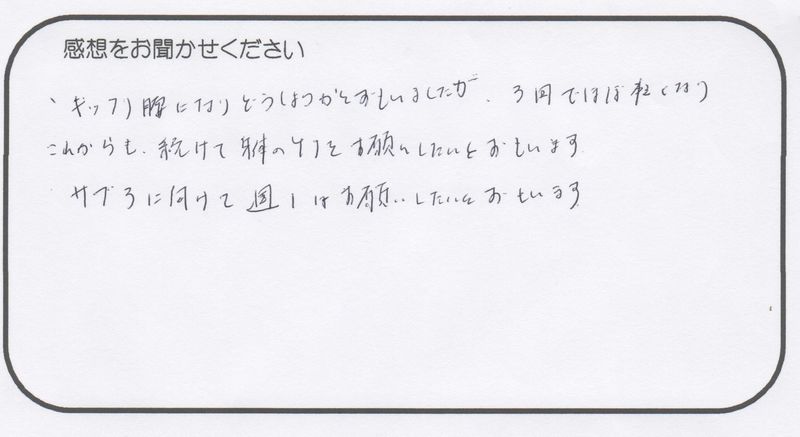 感想をお聞かせください
ギックリ腰になりどうしようかとおもいましたが、3回でほぼ軽くなり
これからも、続けて身体のケアをお願いしたいとおもいます
サブ3に向けて週1はお願いしたいとおもいます